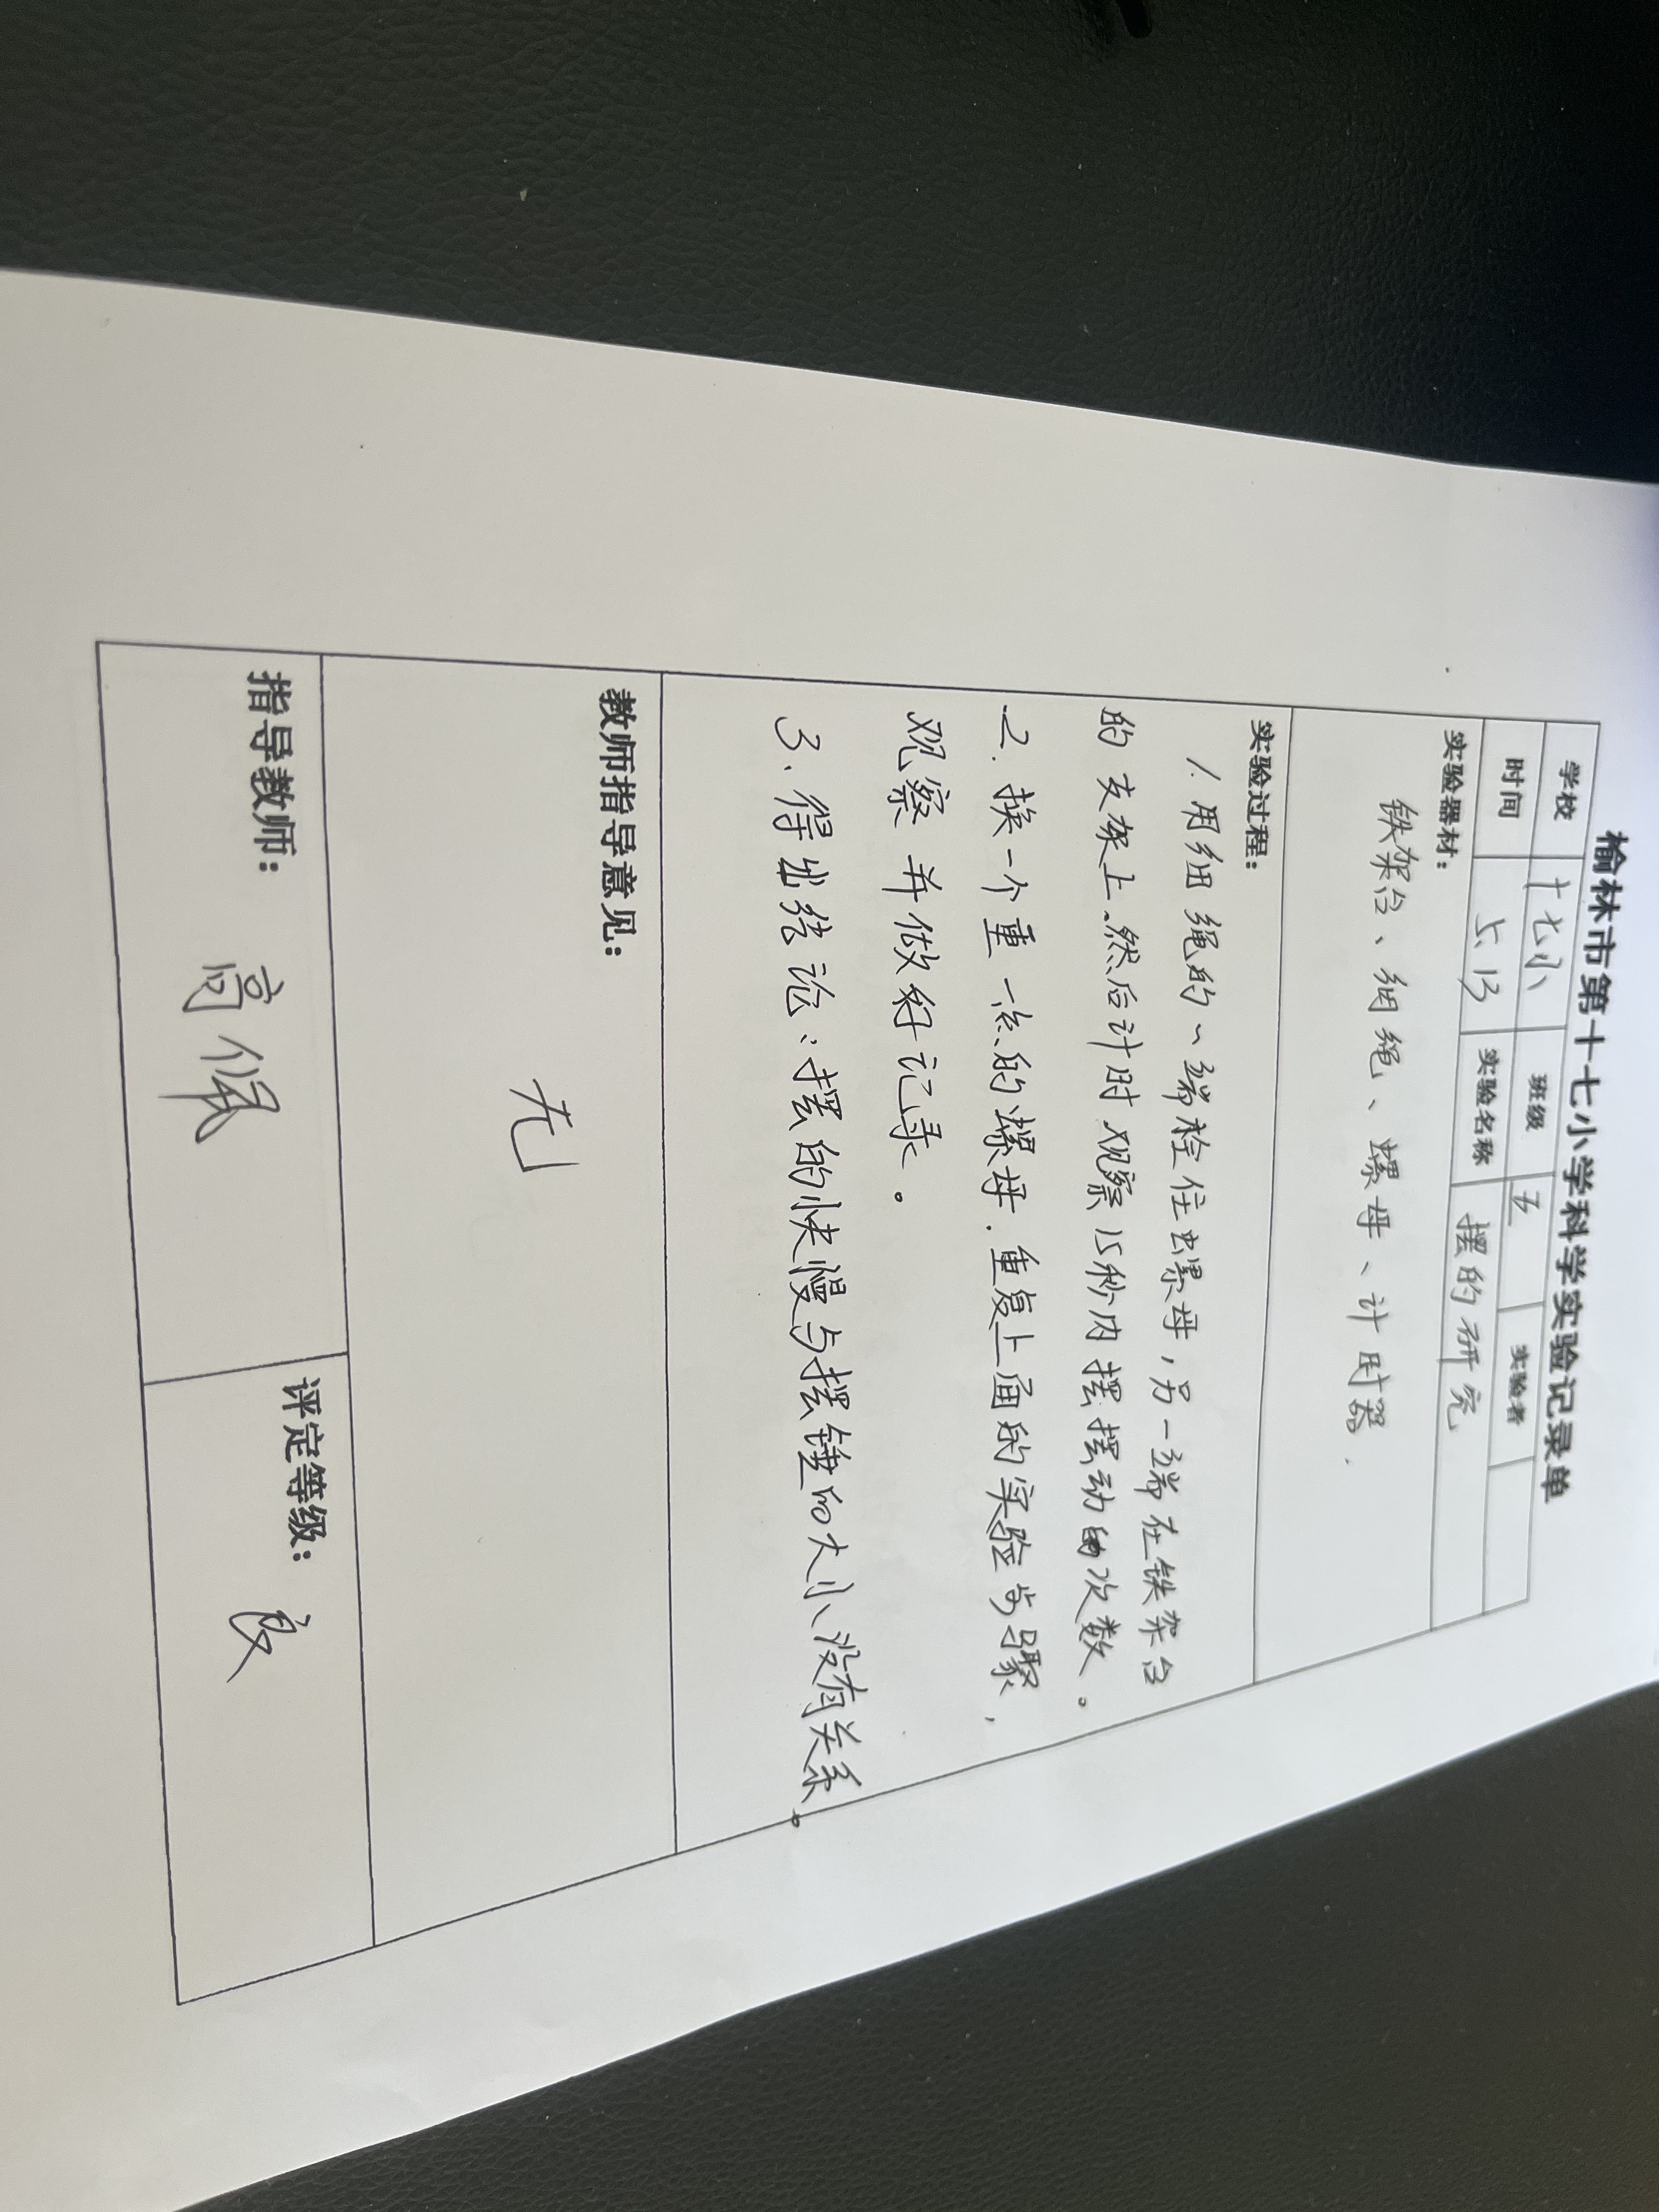 榆林市第十七小学科学实验记录单
学校 十七小 班级 五 实验者
时间 5.13 实验名称 摆的研究
实验器材：
铁架台、细绳、螺母、计时器.
实验过程：
1.用细绳的一端栓住螺母，另一端在铁架台
的支架上.然后计时观察15秒内摆摆动的次数。
2.换一个重一点的螺母.重复上面的实验步骤，
观察并做好记录。
3、得出结论：摆的快慢与摆锤的大小没有关系。
教师指导意见：
无
指导教师： 高 评定等级： 良